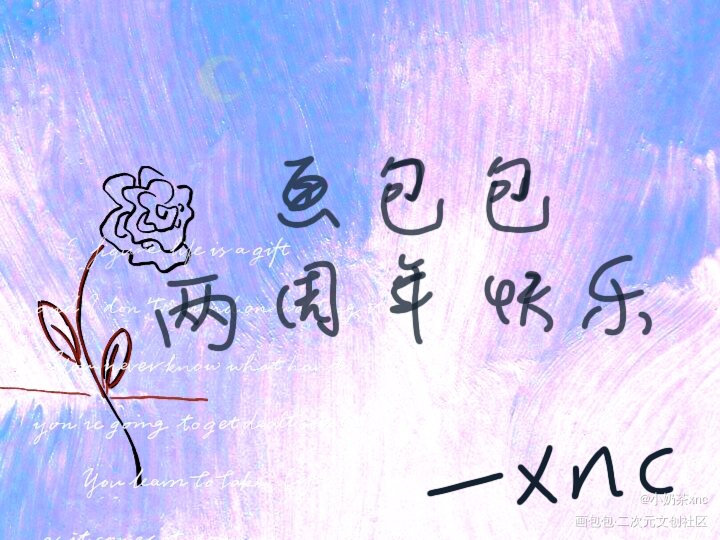 画包包
两周年快乐
I figure life is a gift
and I don't
You never know what
you're going to get dealt
You learn to take
—xnc
@小奶茶xnc
画包包·二次元文创社区